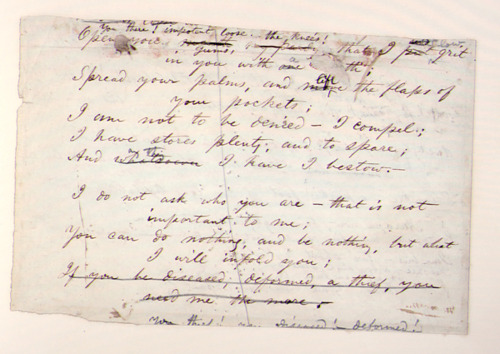 You there! impotent, loose in the knees!
Open your gums, my that I put grit
in you with
Spread your palms, and lift the flaps of
your pockets;
I am not to be denied – I compel;
I have stores plenty, and to spare;
And I have I bestow. –
I do not ask who you are – that is not
important to me;
You can do nothing, and be nothing, but what
I will infold you;
If you be diseased, deformed, a thief, you
need me the more.
You thief! you diseased! deformed!